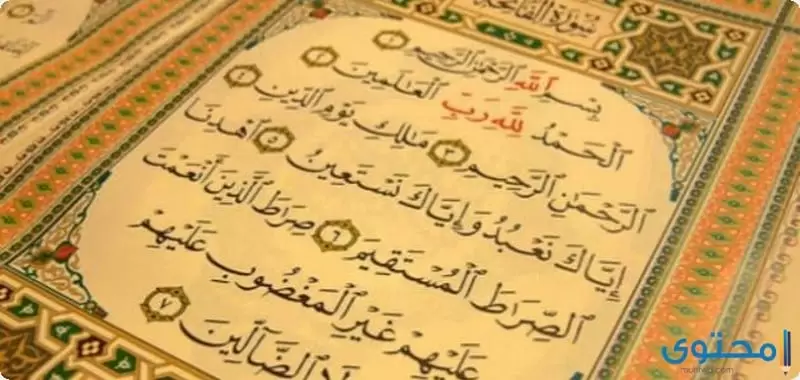 سُورَةُ الْفَاتِحَةِ
بِسْمِ ٱللَّهِ ٱلرَّحْمَٰنِ ٱلرَّحِيمِ ١
ٱلْحَمْدُ لِلَّهِ رَبِّ ٱلْعَٰلَمِينَ ٢
ٱلرَّحْمَٰنِ ٱلرَّحِيمِ ٣ مَٰلِكِ يَوْمِ ٱلدِّينِ ٤
إِيَّاكَ نَعْبُدُ وَإِيَّاكَ نَسْتَعِينُ ٥ ٱهْدِنَا
ٱلصِّرَٰطَ ٱلْمُسْتَقِيمَ ٦ صِرَٰطَ ٱلَّذِينَ أَنْعَمْتَ
عَلَيْهِمْ غَيْرِ ٱلْمَغْضُوبِ عَلَيْهِمْ
ٱلضَّآلِّينَ ٧
محتوى